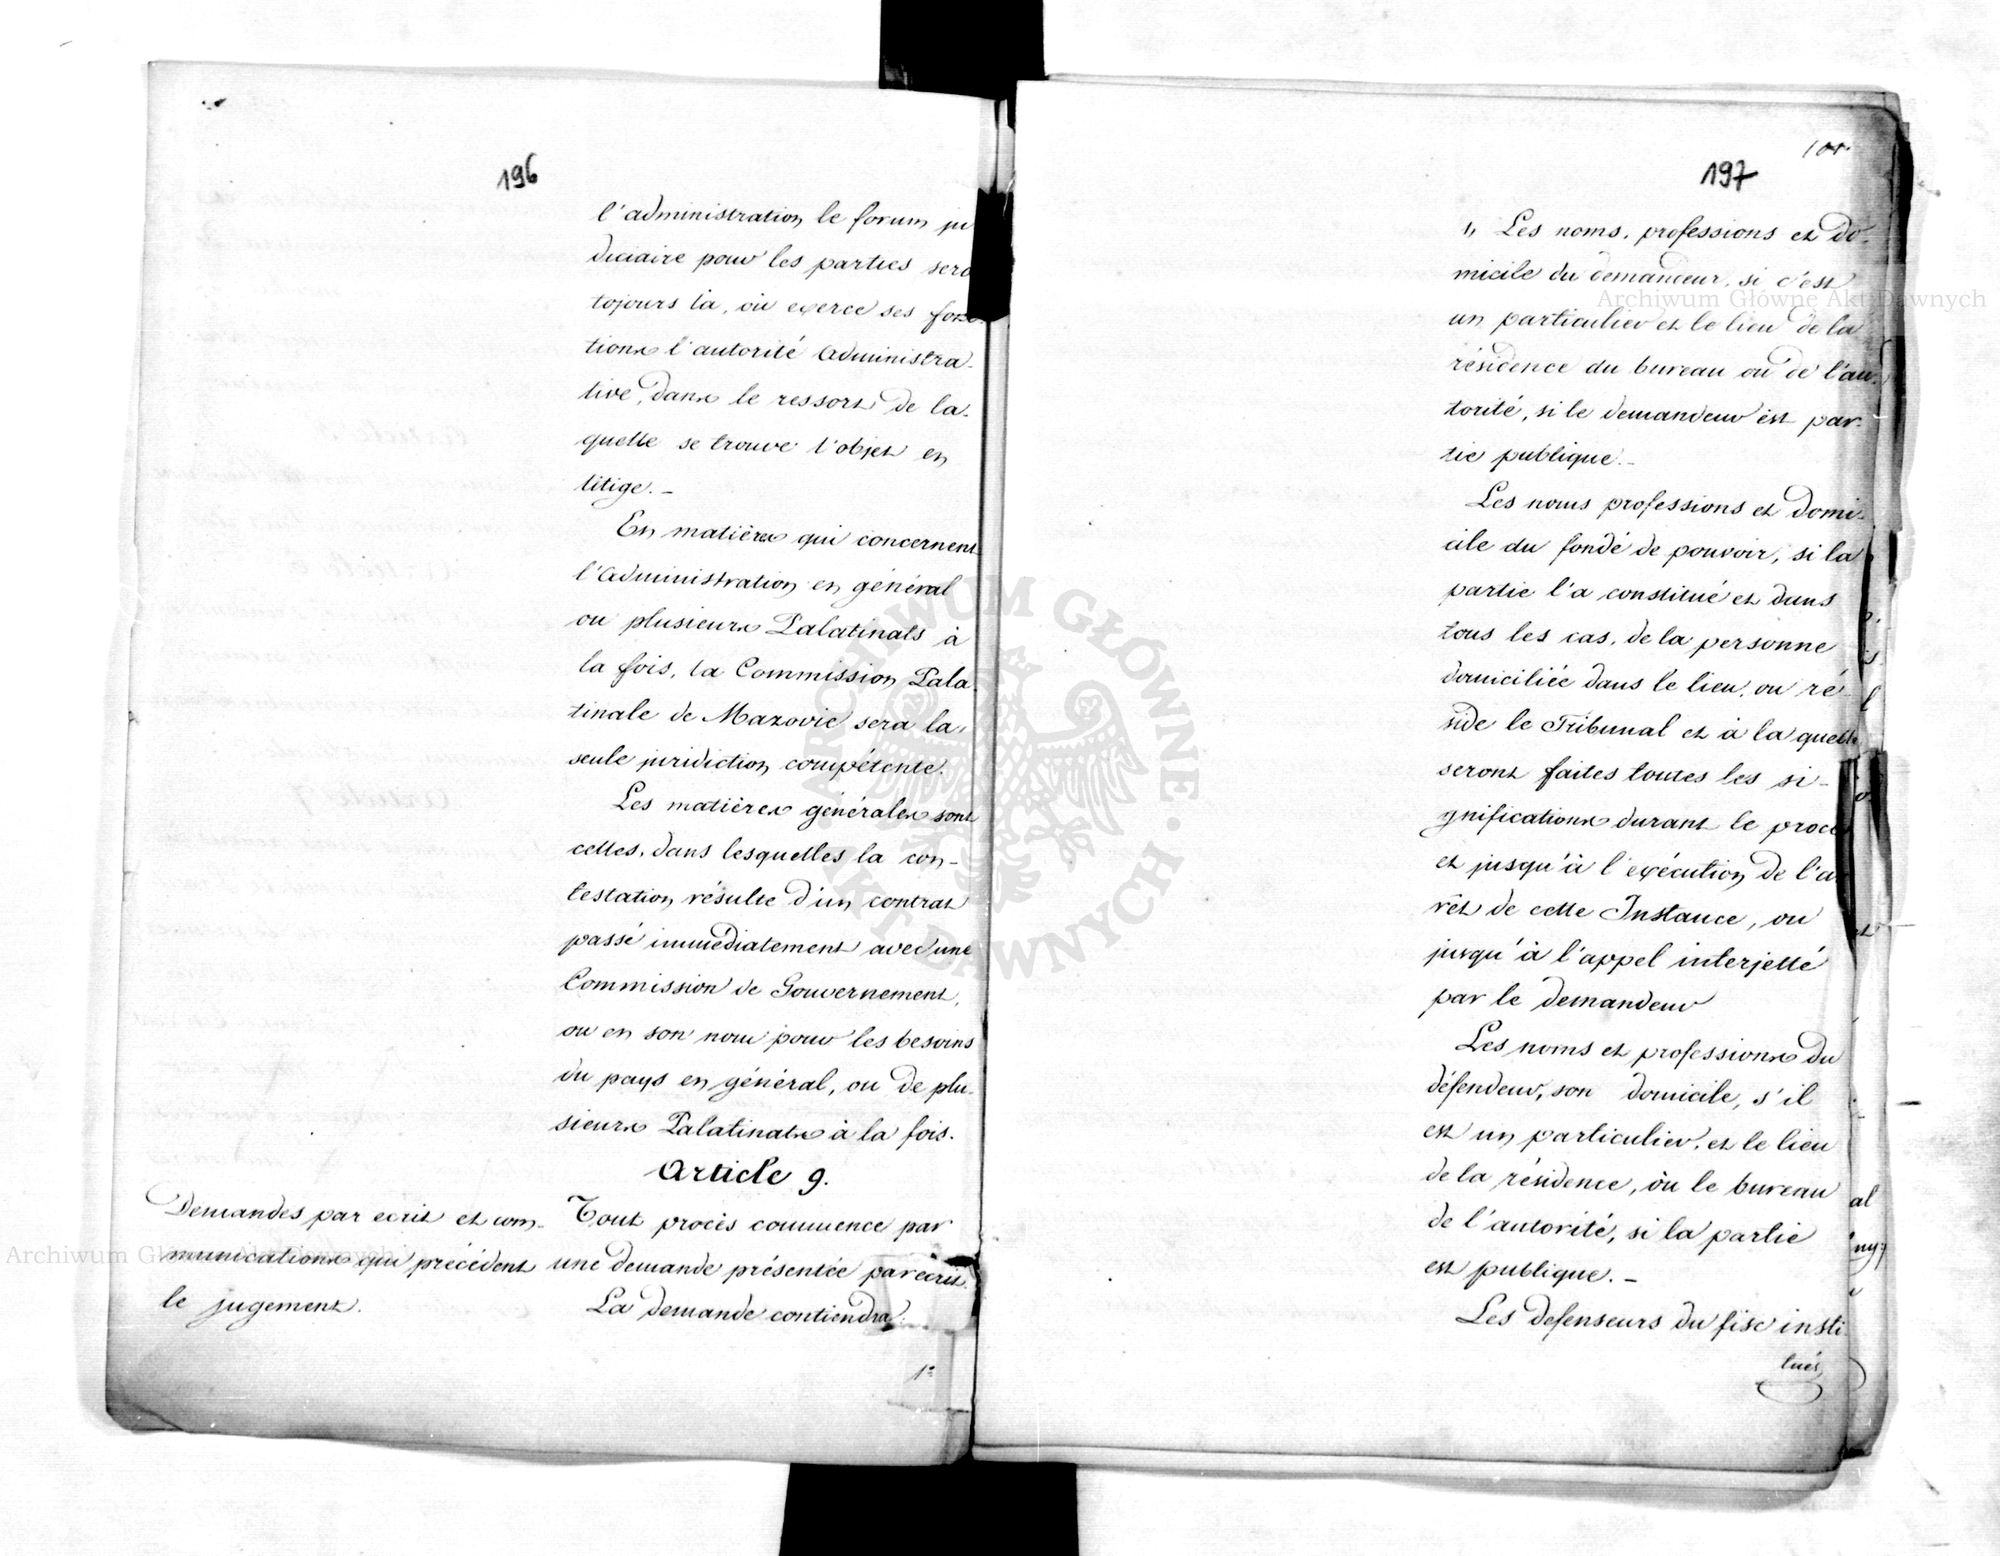 196
l'administration le forum ju
diciaire pour les parties sera
tojours là, où exerce ses fonc
tions l'autorité Administra-
tive, dans le ressort de la-
quelle se trouve l'objet en
litige. -
En matières qui concernent
l'Administration en général
ou plusieurs Palatinats à
la fois, la Commission Pala
tinale de Mazovie sera la
seule juridiction compétente.
Les matières générales sont
celles, dans lesquelles la con-
testation résulte d'un contrat
passé immédiatement avec une
Commission de Gouvernement,
ou en son nom pour les besoins
du pays en général, ou de plu-
sieurs Palatinats à la fois.
Article 9.
Demandes par ecrit et com-
munications qui précèdent
le jugement.
Tout procès commence par
une demande présentée par écrit.
La demande contiendra.
1°
197
1, Les noms, professions et do-
micile du demandeur, si c'est
un particulier et le lieu de la
résidence du bureau ou de l'au-
torité, si le demandeur est par-
tie publique. -
Les noms professions et domi-
cile du fondé de pouvoir, si la
partie l'a constitué et dans
tous les cas, de la personne
domiciliée dans le lieu, ou ré-
side le Tribunal et à la quelle
seront faites toutes les si-
gnifications durant le procès
et jusqu'à l'exécution de l'ar
rêt de cette Instance, ou
jusqu'à l'appel interjetté
par le demandeur
Les noms et professions du
défendeur, son domicile, s'il
est un particulier, et le lieu
de la résidence, où le bureau
de l'autorité, si la partie
est publique. -
Les defenseurs du fisc insti
tués
Archiwum Główne Akt Dawnych
Archiwum Główne Akt Dawnych
ARCHIWUM GŁÓWNE · AKT DAWNYCH ·